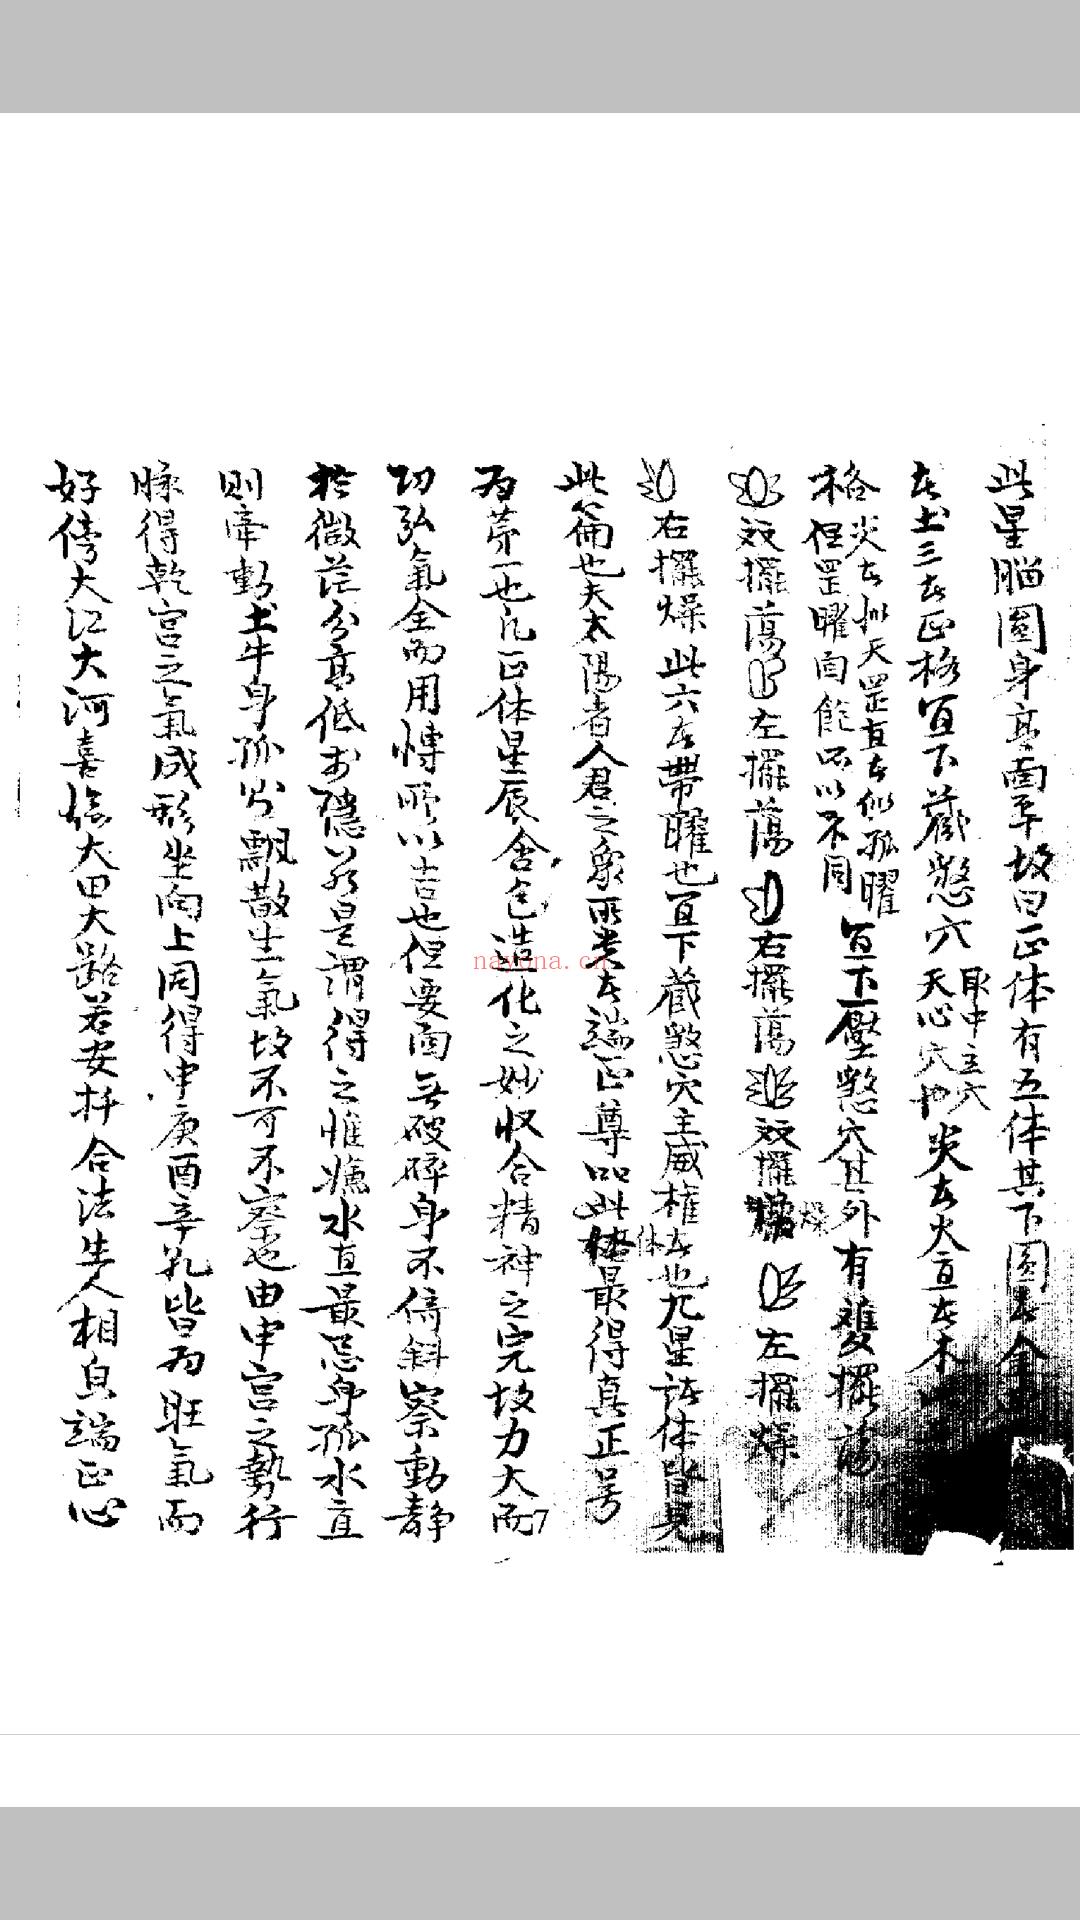 此星腦圓身高面平故曰正体有五体其下圓者金
者土三者正格宜下藏煞穴
取中主穴
天心穴也
尖者火直者木
格
尖者似天罡直者似孤曜
但罡曜面飽所以不同
宜下壓煞穴其外有雙擺蕩
双擺蕩
左擺蕩
右擺蕩
双擺燥
左擺燥
右擺燥
此六者帶曜也宜下藏煞穴主威權者也九星諸体皆見
此篇也夫太陽者人君之象所貴者端正尊品此体最得真正号
体
為第一也凡正体星辰含包造化之妙收合精神之完故力大而
功弘氣全而用博所以吉也但要面無破碎身不倚斜察動静
於微茫分高低於隱若是謂得之惟燕水直最忌身孤水直
則牽動土牛身孤則飄散生氣故不可不察也由申宫之勢行
脉得乾宫之氣成形坐向上同得申庚酉辛乳皆为旺氣而
好傍大江大河喜臨大田大路若安扦合法生人相貌端正心
7
nayona.cn